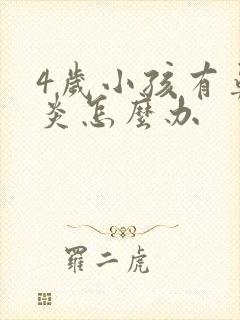 4歲小孩有
炎怎麼办
羅二虎